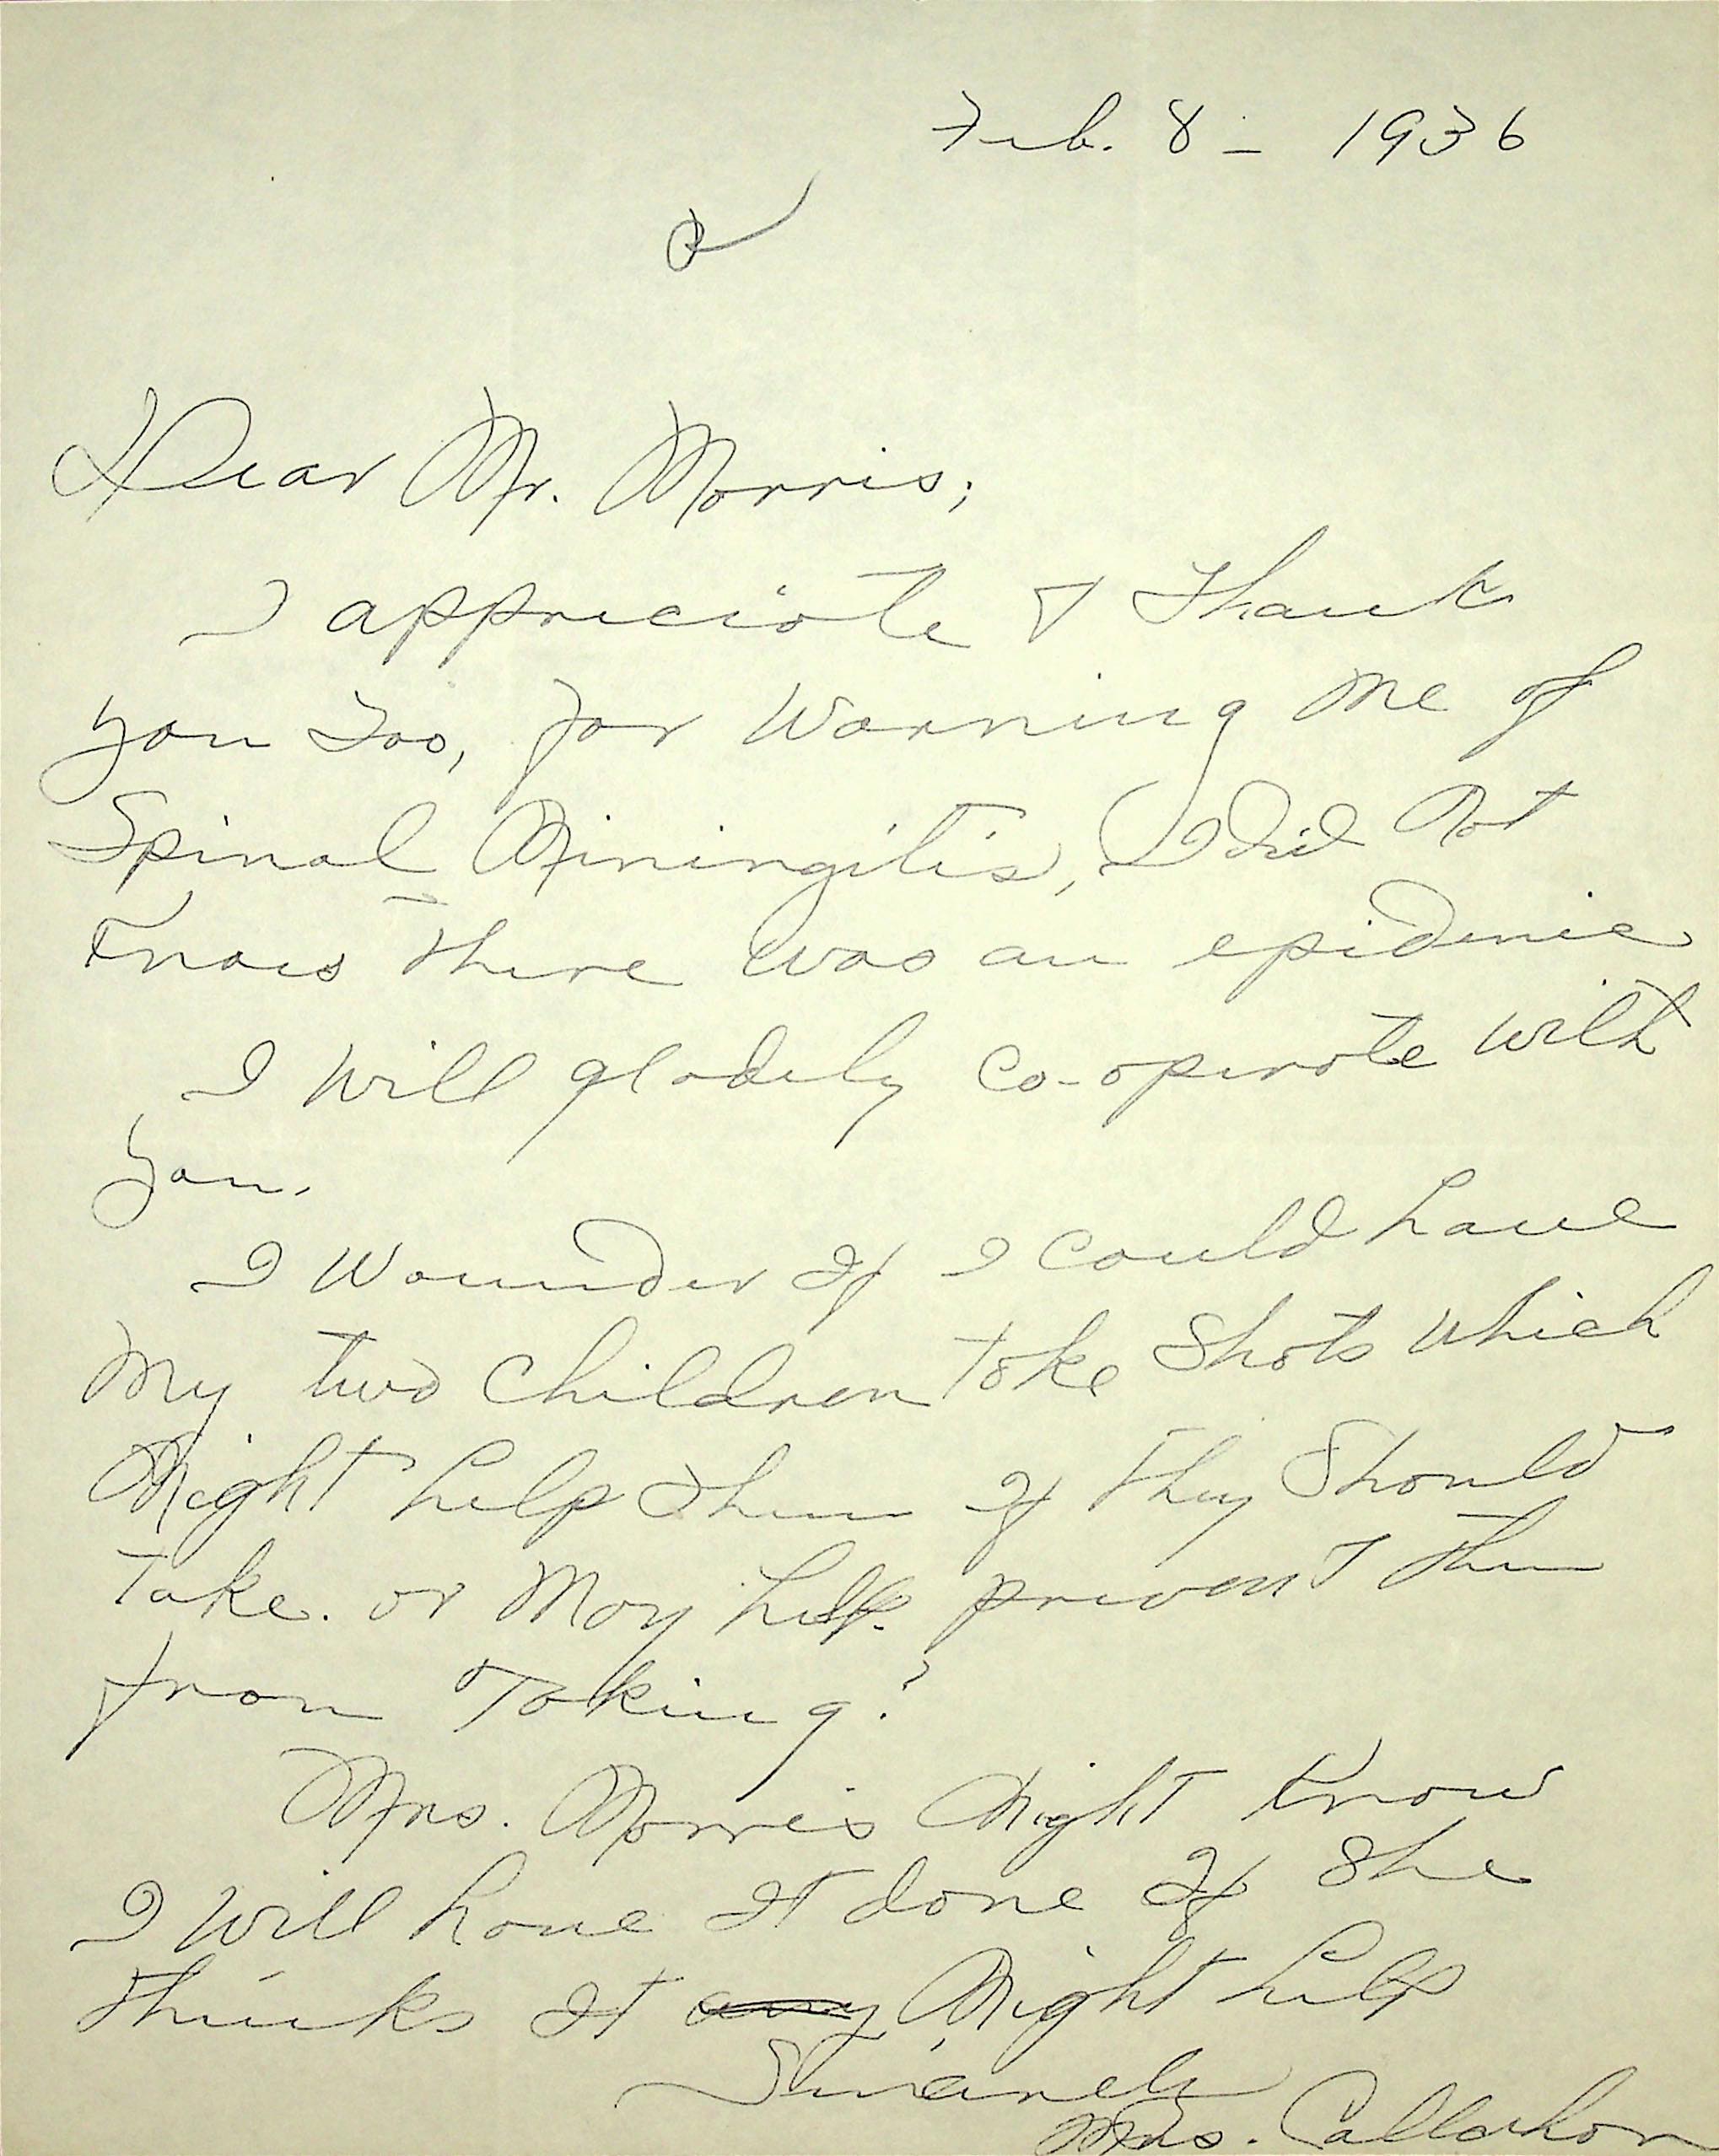 Feb. 8 - 1936
Dear Mr. Morris;
I appreciate & Thank
you Too, for Warning Me of
Spinal Miningitis, I Did Not
Know There Was an epidemic
I Will gladely Co-operate With
you.
I Wounder If I Could have
My two Children Take Shots Which
Might help Them If They Should
Take. or May help prevent Them
from Taking?
Mrs. Morris Might Know
I Will have It done If She
Thinks It any Might help
Sincerely
Mrs. Callahan